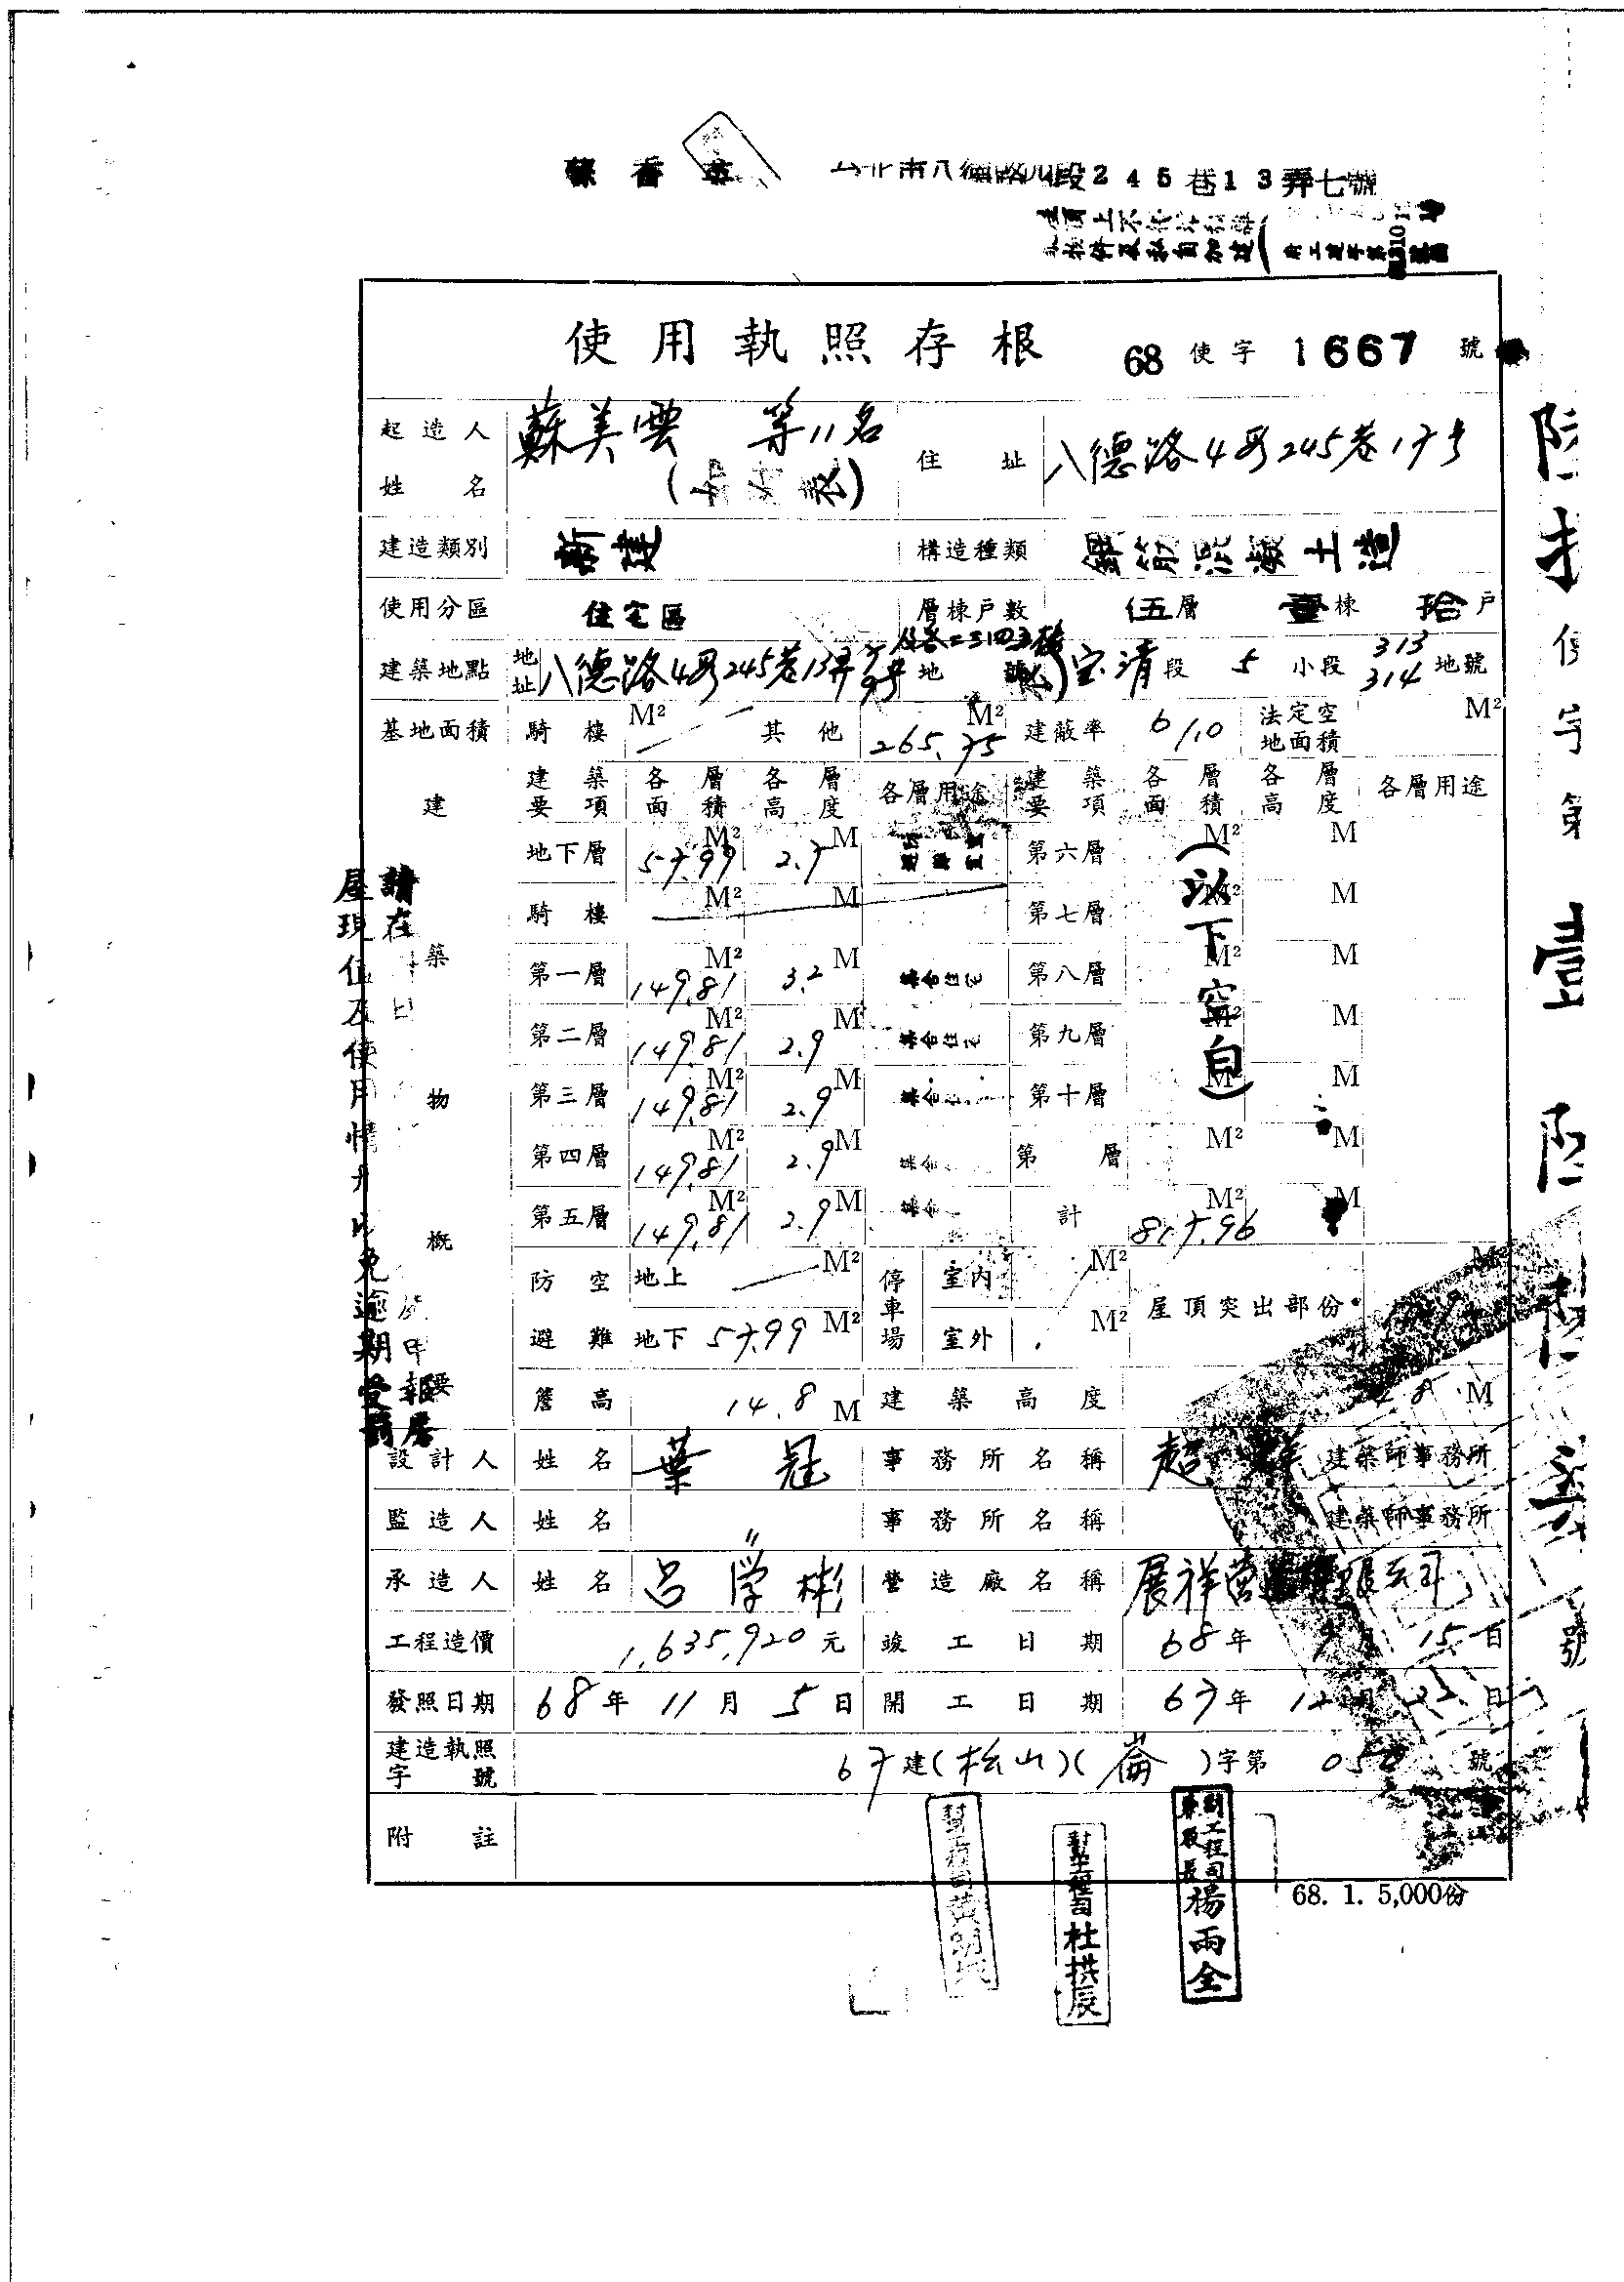 台北市八德路四段245巷13弄七號
使用執照存根 68 使字 1667 號
起造人姓名 蘇美雲 等11名 住址 八德路4段245巷17号
建造類別 新建 構造種類 鋼筋混凝土造
使用分區 住宅區 層棟戶數 伍層 壹棟 拾戶
建築地點 地址 八德路4段245巷13弄7号9号 地號 宝清段 5 小段 313 314 地號
基地面積 騎樓 M² 其他 265.75 M² 建蔽率 6/10 法定空地面積 M²
建築物概要
建築要項 各層面積 各層高度 各層用途 建築要項 各層面積 各層高度 各層用途
地下層 57.99 M² 2.7 M 第六層 M² M
騎樓 M² M 第七層 M² M
第一層 149.81 M² 3.2 M 集合住宅 第八層 M² M
第二層 149.81 M² 2.9 M 集合住宅 第九層 M² M
第三層 149.81 M² 2.9 M 第十層 M² M
第四層 149.81 M² 2.9 M 第 層 M² M
第五層 149.81 M² 2.9 M 計 817.96 M² M
(以下空白)
防空避難 地上 M² 停車場 室內 M² 屋頂突出部份 M²
地下 57.99 M² 室外 M²
簷高 14.8 M 建築高度 14.8 M
設計人 姓名 葉冠 事務所名稱 超群 建築師事務所
監造人 姓名 〃 事務所名稱 建築師事務所
承造人 姓名 呂学彬 營造廠名稱 展祥营造有限公司
工程造價 1,635,920 元 竣工日期 68年 9月 15日
發照日期 68年 11月 5日 開工日期 67年 12月 22日
建造執照字號 67建(松山)(崙)字第 號
附註
68. 1. 5,000份
杜拱辰
副工程司兼股長楊雨全